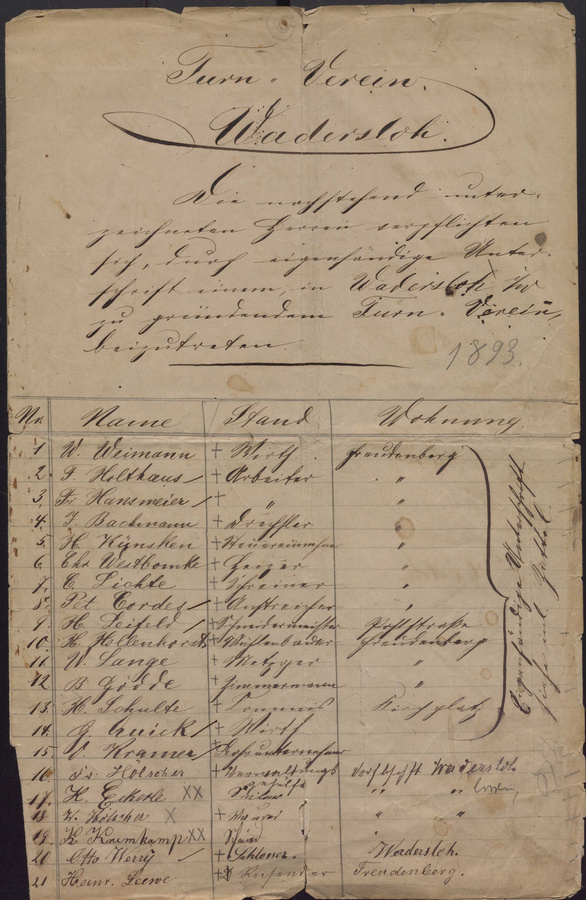 Turn-Verein
Wadersloh.
Die nachstehend unter-
zeichneten Herren verpflichten
sich, durch eigenhändige Unter-
schrift einem, in Wadersloh i/w
zu gründendem Turn-Verein,
beizutreten.
1893.
Nr. Name Stand Wohnung
1 W. Weimann + Wirth Freudenberg
2. F. Holthaus / + Arbeiter "
3 Fr. Hansmeier / + " "
4. J. Bachmann + Drechsler "
5 H. + "
6 Chr Westbomke + Heizer "
7. C Lichte + Schreiner "
8. Pet. Cordes / + Anstreicher "
9 H. Leifeld / + Schneidermeister Poststraße
10. H. Hollenhorst + Freudenberg
11 W. Lange + Metzger "
12 B Gödde + Zimmermann "
13. H. Schulte + Commis Kirchplatz
14. G. Quick / + Wirth
15. Kramer /
16 Fr. Hölscher + Verwaltungs Dorf Wadersloh
gehülfe
17. H. Eckerle XX " "
18 Hölscher X + " "
19. H Kamkamp XX
20 Otto Werry + Schlosser. Wadersloh.
21 Heinr. Loewe Freudenberg.
Eigenhändige Unterschrift
siehe inl. Zettel.